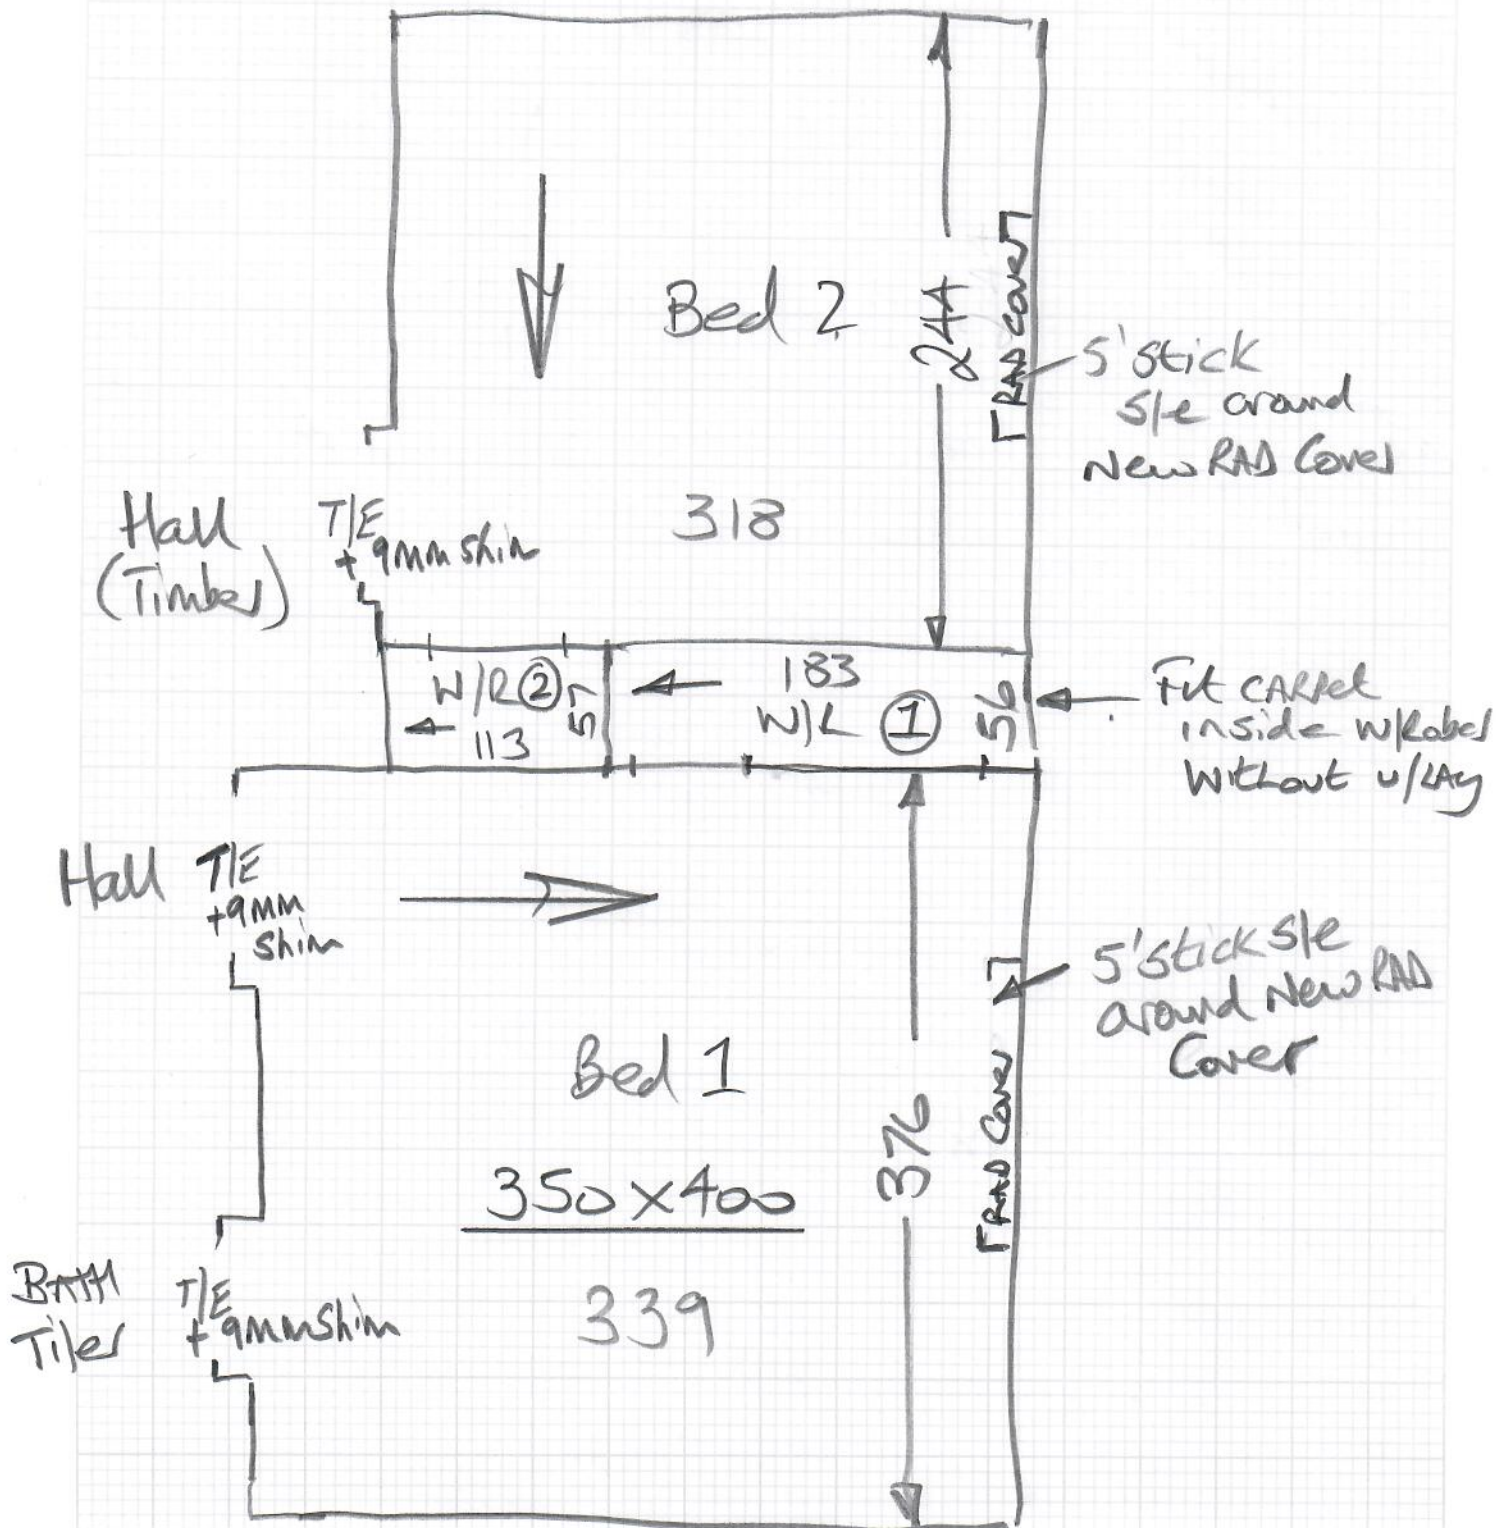 Bed 2
244
RAD Cover
5' stick
s/e around
New RAD Cover
Hall
(Timber)
T/E
+ 9mm shim
318
W/R ②
57
113
183
W/R ①
56
Fit CARPet
inside w/Robes
without u/LAy
Hall
T/E
+9mm
shim
5' stick s/e
around New RAD
Cover
Bed 1
376
RAD Cover
350 x 400
339
BATH
Tiles
T/E
+ 9mm shim